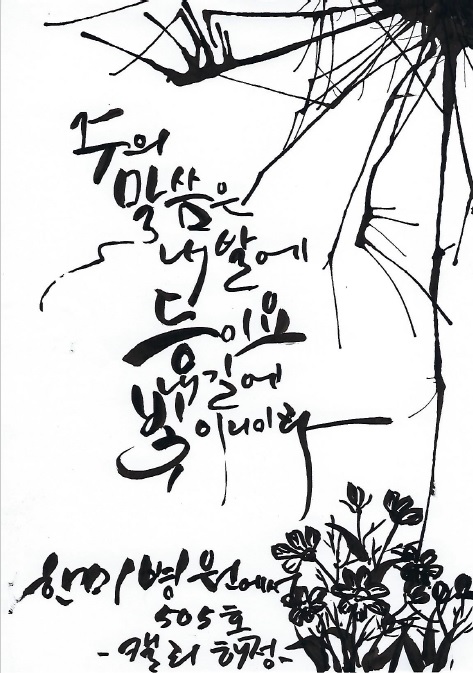 주의
말씀은
내 발에
등이요
내 길에
빛이니이다
한마음병원에서
505호
- 캘리 해정 -